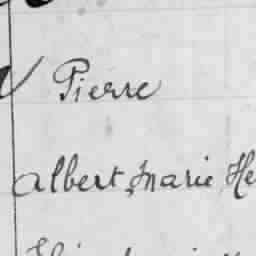 Pierre
Albert, Marie He